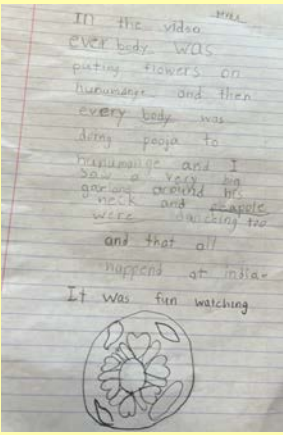 In the video
ever body was
puting flowers on
hunumange and then
every body was
doing pooja to
hunumange and I
saw a very big
garland around his
neck and peapole
were dancking too
and that all
happend at india.
It was fun watching